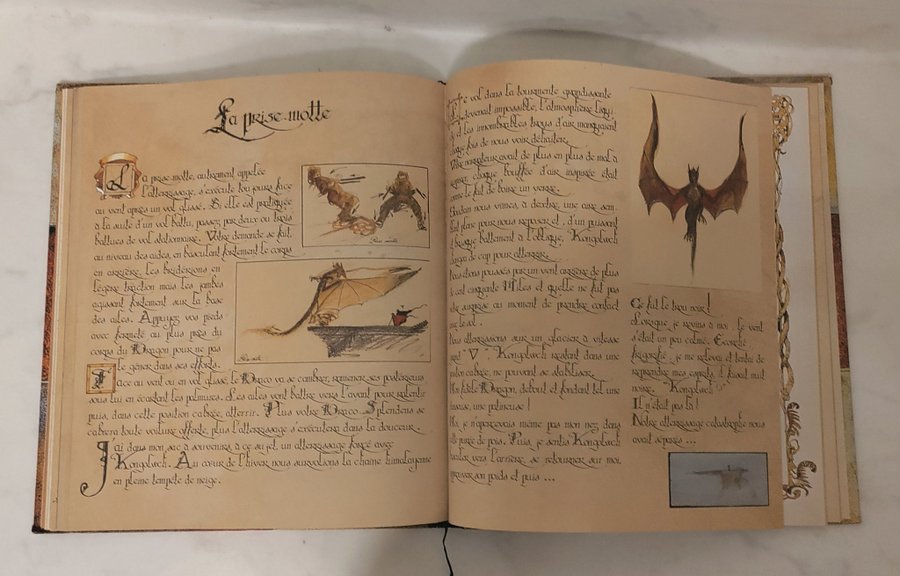 La prise-motte
La prise-motte, autrement appelée
l'atterrissage, s'exécute toujours face
au vent après un vol glissé. Si elle est pratiquée
à la suite d'un vol battu, passez par deux ou trois
battues de vol stationnaire. Votre demande se fait,
au niveau des aides, en basculant fortement le corps
en arrière, les bridérions en
légère traction mais les jambes
agissant fortement sur la base
des ailes. Appuyez vos pieds
avec fermeté au plus près du
corps du Dragon pour ne pas
le gêner dans ses efforts.
Face au vent ou en vol glissé, le Draco va se cambrer, ramener ses postérieurs
sous lui en écartant les palmures. Les ailes vont battre vers l'avant pour ralentir
puis, dans cette position cabrée, atterrir. Plus votre Draco Splendens se
cabrera toute voilure offerte, plus l'atterrissage s'exécutera dans la douceur.
J'ai dans mon sac à souvenirs, à ce sujet, un atterrissage forcé avec
Kongelach. Au cœur de l'hiver nous survolions la chaîne himalayenne
en pleine tempête de neige.
vol dans la tourmente grandissante
devenait impossible, l'atmosphère
et les innombrables trous d'air manquaient
chaque fois de nous voir
Votre narrateur avait de plus en plus de mal à
chaque bouffée d'air inspirée était
comme le fait de boire un verre.
Soudain nous vîmes, à dextre, une aire
plane pour nous reposer et, d'un puissant
et brusque battement à l'oblique, Kongelach
changea de cap pour atterrir.
Nous étions poussés par un vent arrière de plus
de cent cinquante Miles et quelle ne fut pas
surprise au moment de prendre contact
avec le sol.
Nous atterrissions sur un glacier à vitesse
"V". Kongelach restant dans une
position cabrée, ne pouvant se stabiliser.
Mon fidèle Dragon, debout et fendant tel une
une palmeuse !
je n'apercevais même pas mon nez dans
cette purée de pois. Puis, je sentis Kongelach
basculer vers l'arrière, se retourner sur moi,
son poids et puis ...
Ce fut le trou noir !
Lorsque je revins à moi, le vent
s'était un peu calmé. Ecorché,
frigorifié, je me relevai et tentai de
reprendre mes esprits. Il faisait nuit
noire. Kongelach
Il n'était pas là !
Notre atterrissage catastrophe nous
avait séparés ...